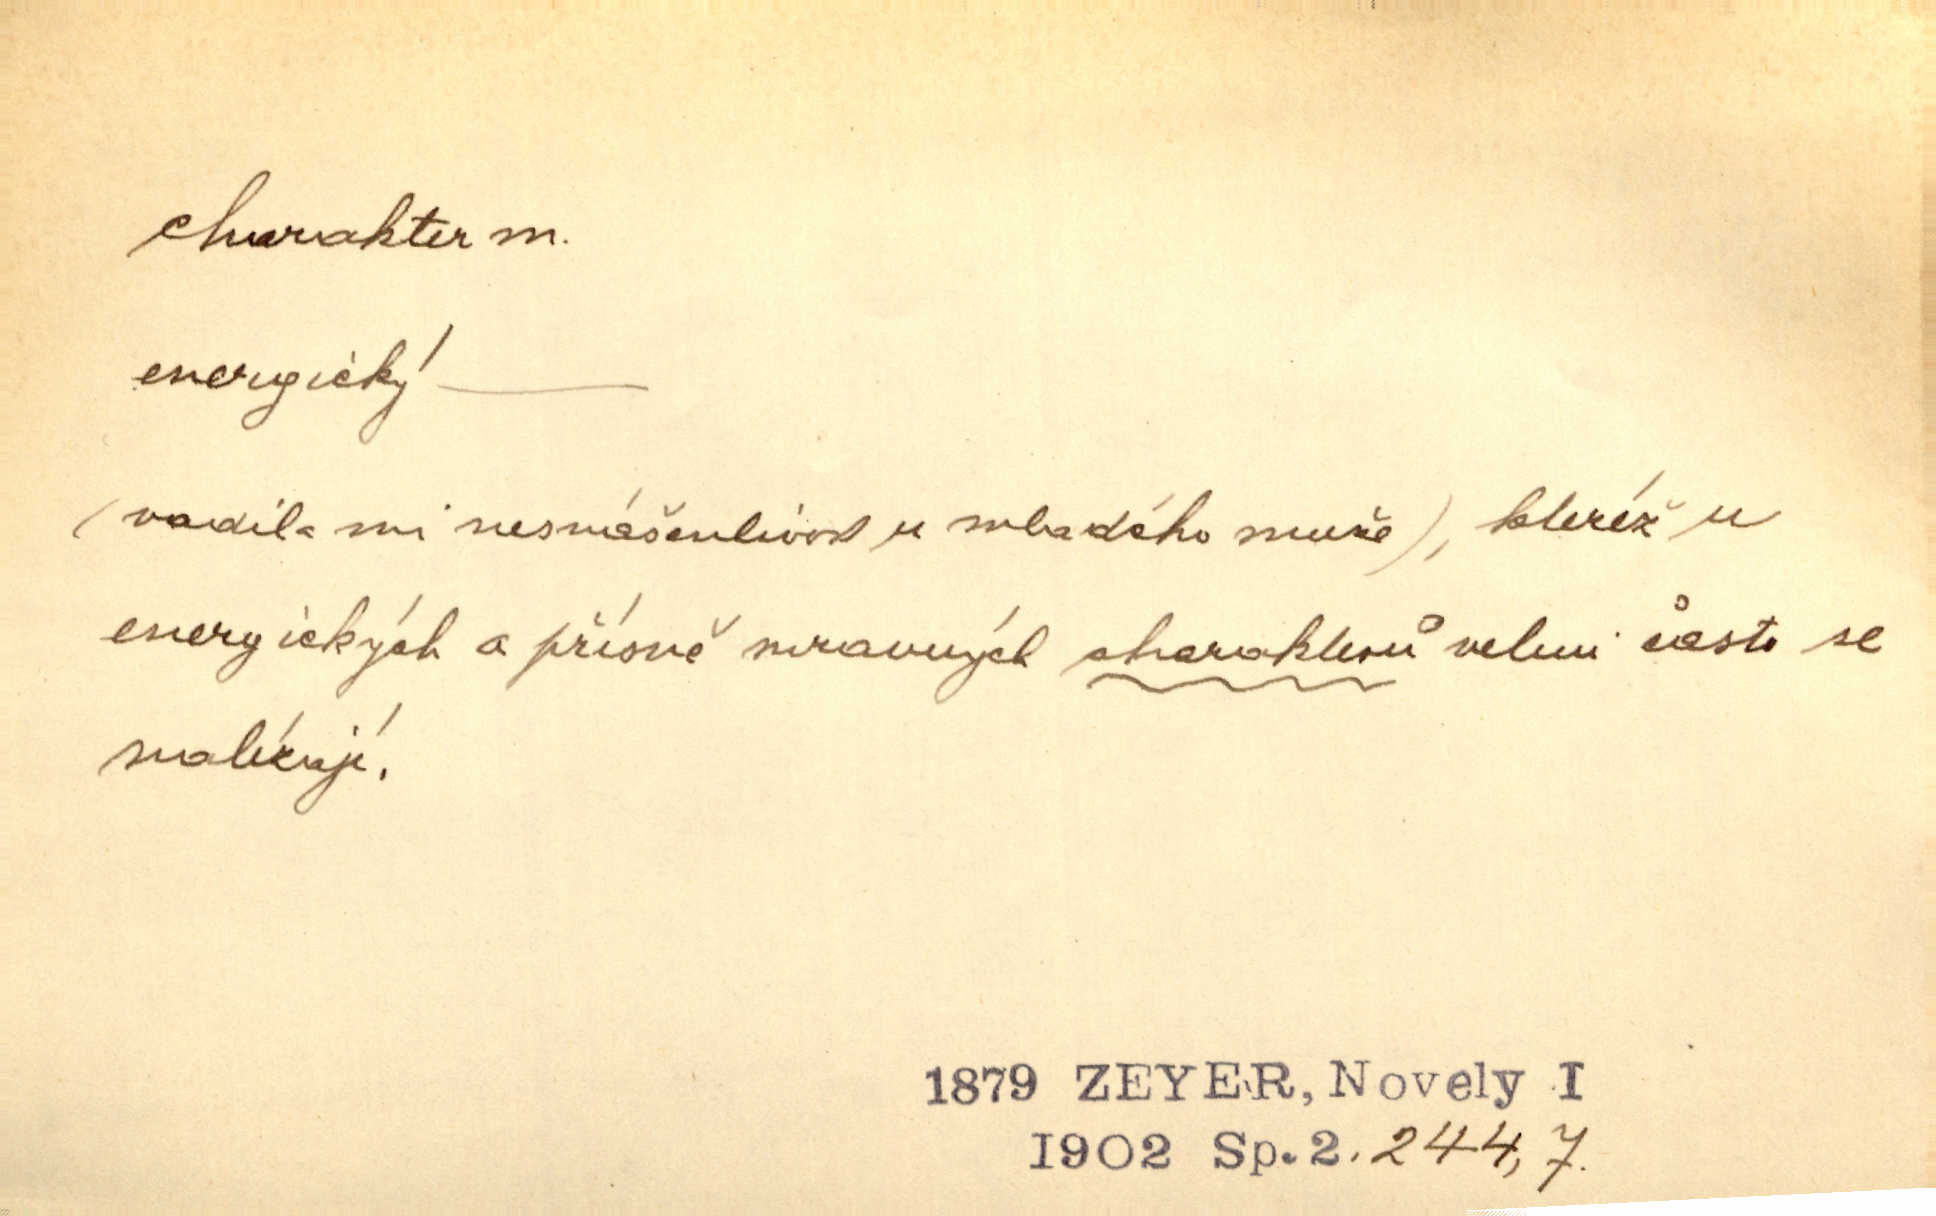 charakter m.
energický —
(vadila mi nesnášenlivost u mladého muže), kteréž u
energických a přísně mravných charakterů velmi často se
nalézají.
1879 ZEYER, Novely I
1902 Sp. 2. 244, 7.